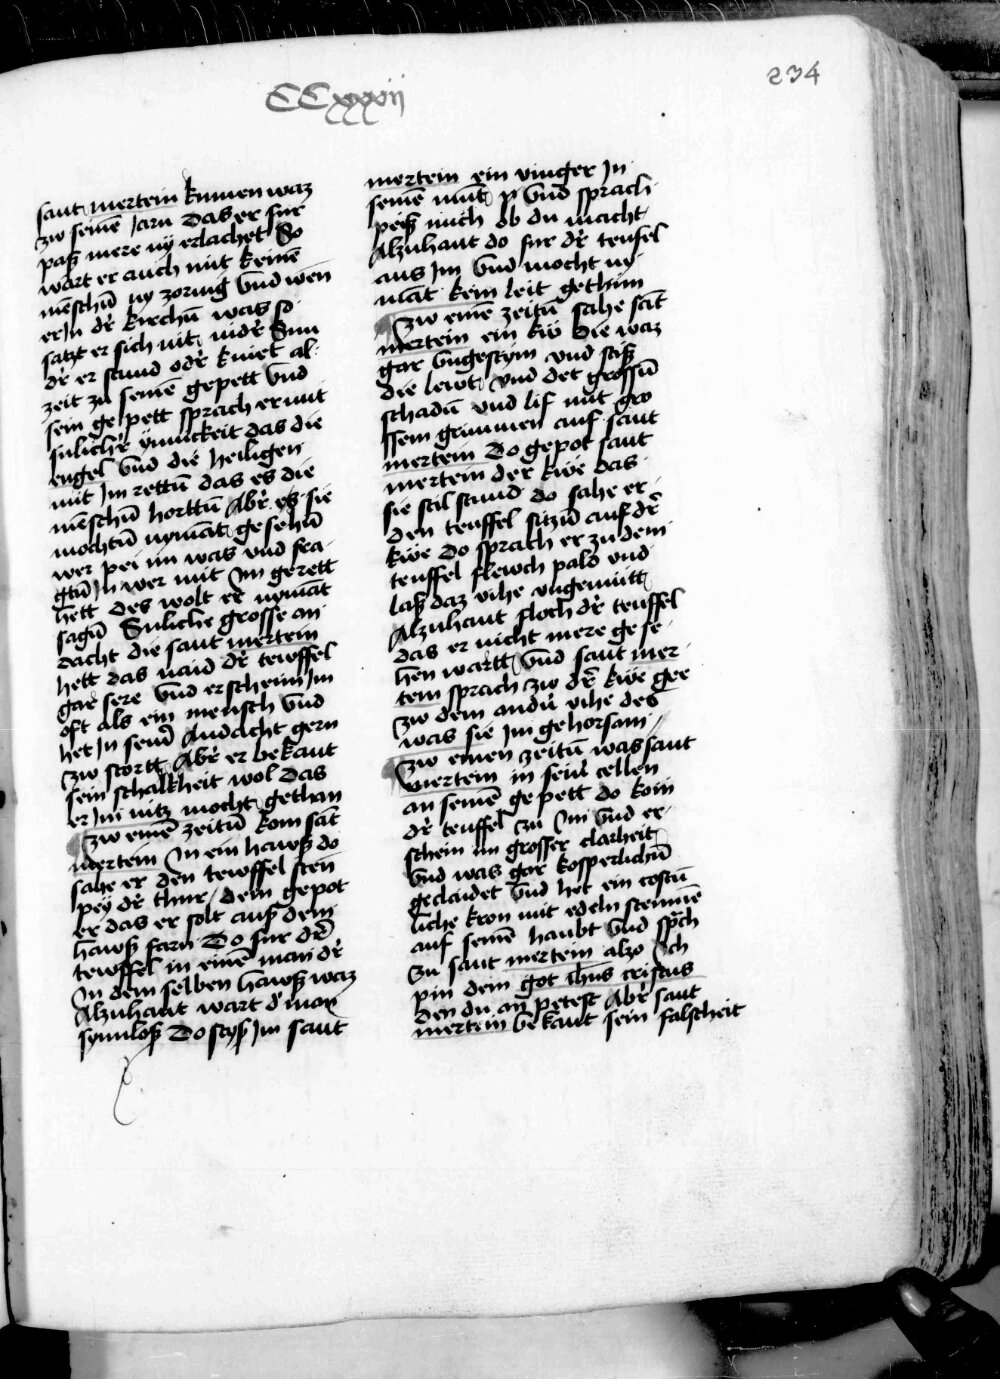 CCxxxij
234
sant mertein kumen waz
zw seinē Jarn das er fur
paß mere ny erlachet So
wart er auch mit keinē
mēschū ny zornig vnd wen
er In dr̓ kirchū was so
satzt er sich nit nidr̓ Sun
dr̓ er stund odr̓ kniet al
zeit zu seinē gepett vnd
sein gepett sprach er mit
sulichr̓ ynnickeit das die
engel vnd die heiligen
mit Im rettū das es die
mēschū horttū Abr̓ eß sie
mochtū nymāt gesehū
wer pei im was vnd fra
gtū In wer mit Im gerett
hett des wolt er nymāt
sagū Suliche grosse an
dacht die sant mertein
hett das naid dr̓ tewffel
gar sere vnd erschein Im
oft als ein mensch vnd
het In seinr̓ Andacht gern
zw stortt Abr̓ er bekant
sein schalkheit wol das
er Im nitz mocht gethan
zw einē zeitū kom sāt
mertein In ein hawß do
sahe er den tewffel sten
pey dr̓ thur dem gepot
er das er solt auß dem
hawß farn Do fur dr̓
tewffel in einē man dr̓
In dem selben hawß waz
Alzuhant wart d̓ man
synnloß Do styß Im sant
mertein ein vinger In
seinē mūt vnd sprach
peiß mich ob du macht
Alzuhant do fur dr̓ teufel
aus Im vnd mocht ny
māt kein leit gethun
zw einē zeitū sahe sāt
mertein ein kw die waz
gar vngestym vnd stiß
die lewt vnd det grossū
schadū vnd lif mit gro
ssem grimmen auf sant
mertein Do gepot sant
mertein der kwe das
sie stil stund do sahe er
den teuffel sitzū auf dr̓
kwe Do sprach er zu dem
teuffel flewch pald vnd
laß daz vihe vngemütt
Alzuhant floch dr̓ teuffel
das er nicht mere gese
hen wartt vnd sant mer
tein sprach zw dr̓ kwe gee
zw dem andn̓ vihe des
was sie Im gehorsam
zw einen zeitū was sant
mertein in seinr̓ cellen
an seinē gepett do kom
dr̓ teuffel zu Im vnd er
schein im grosser clarheit
vnd was gar kosperlichū
geclaidet vnd het ein costū
liche kron mit edeln steinnē
auf seinē haubt vnd sp̄ch
zu sant mertein alzo Ich
pin dem got ih̄us cristus
den du an petest Abr̓ sant
mertein bekant sein falscheit